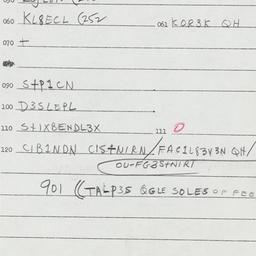 060 KL8ECL (252 061 KOR3K QH
070 +
090 S+P1CN
100 D3SLEPL
110 S+1XBENDL3X 111 0
120 C1B1NDN C1S+N1RN/FAC1L83V3N QH/
OU-FG3S+N1R1
901 ((TALP3S QGLE SOLES OF FEE